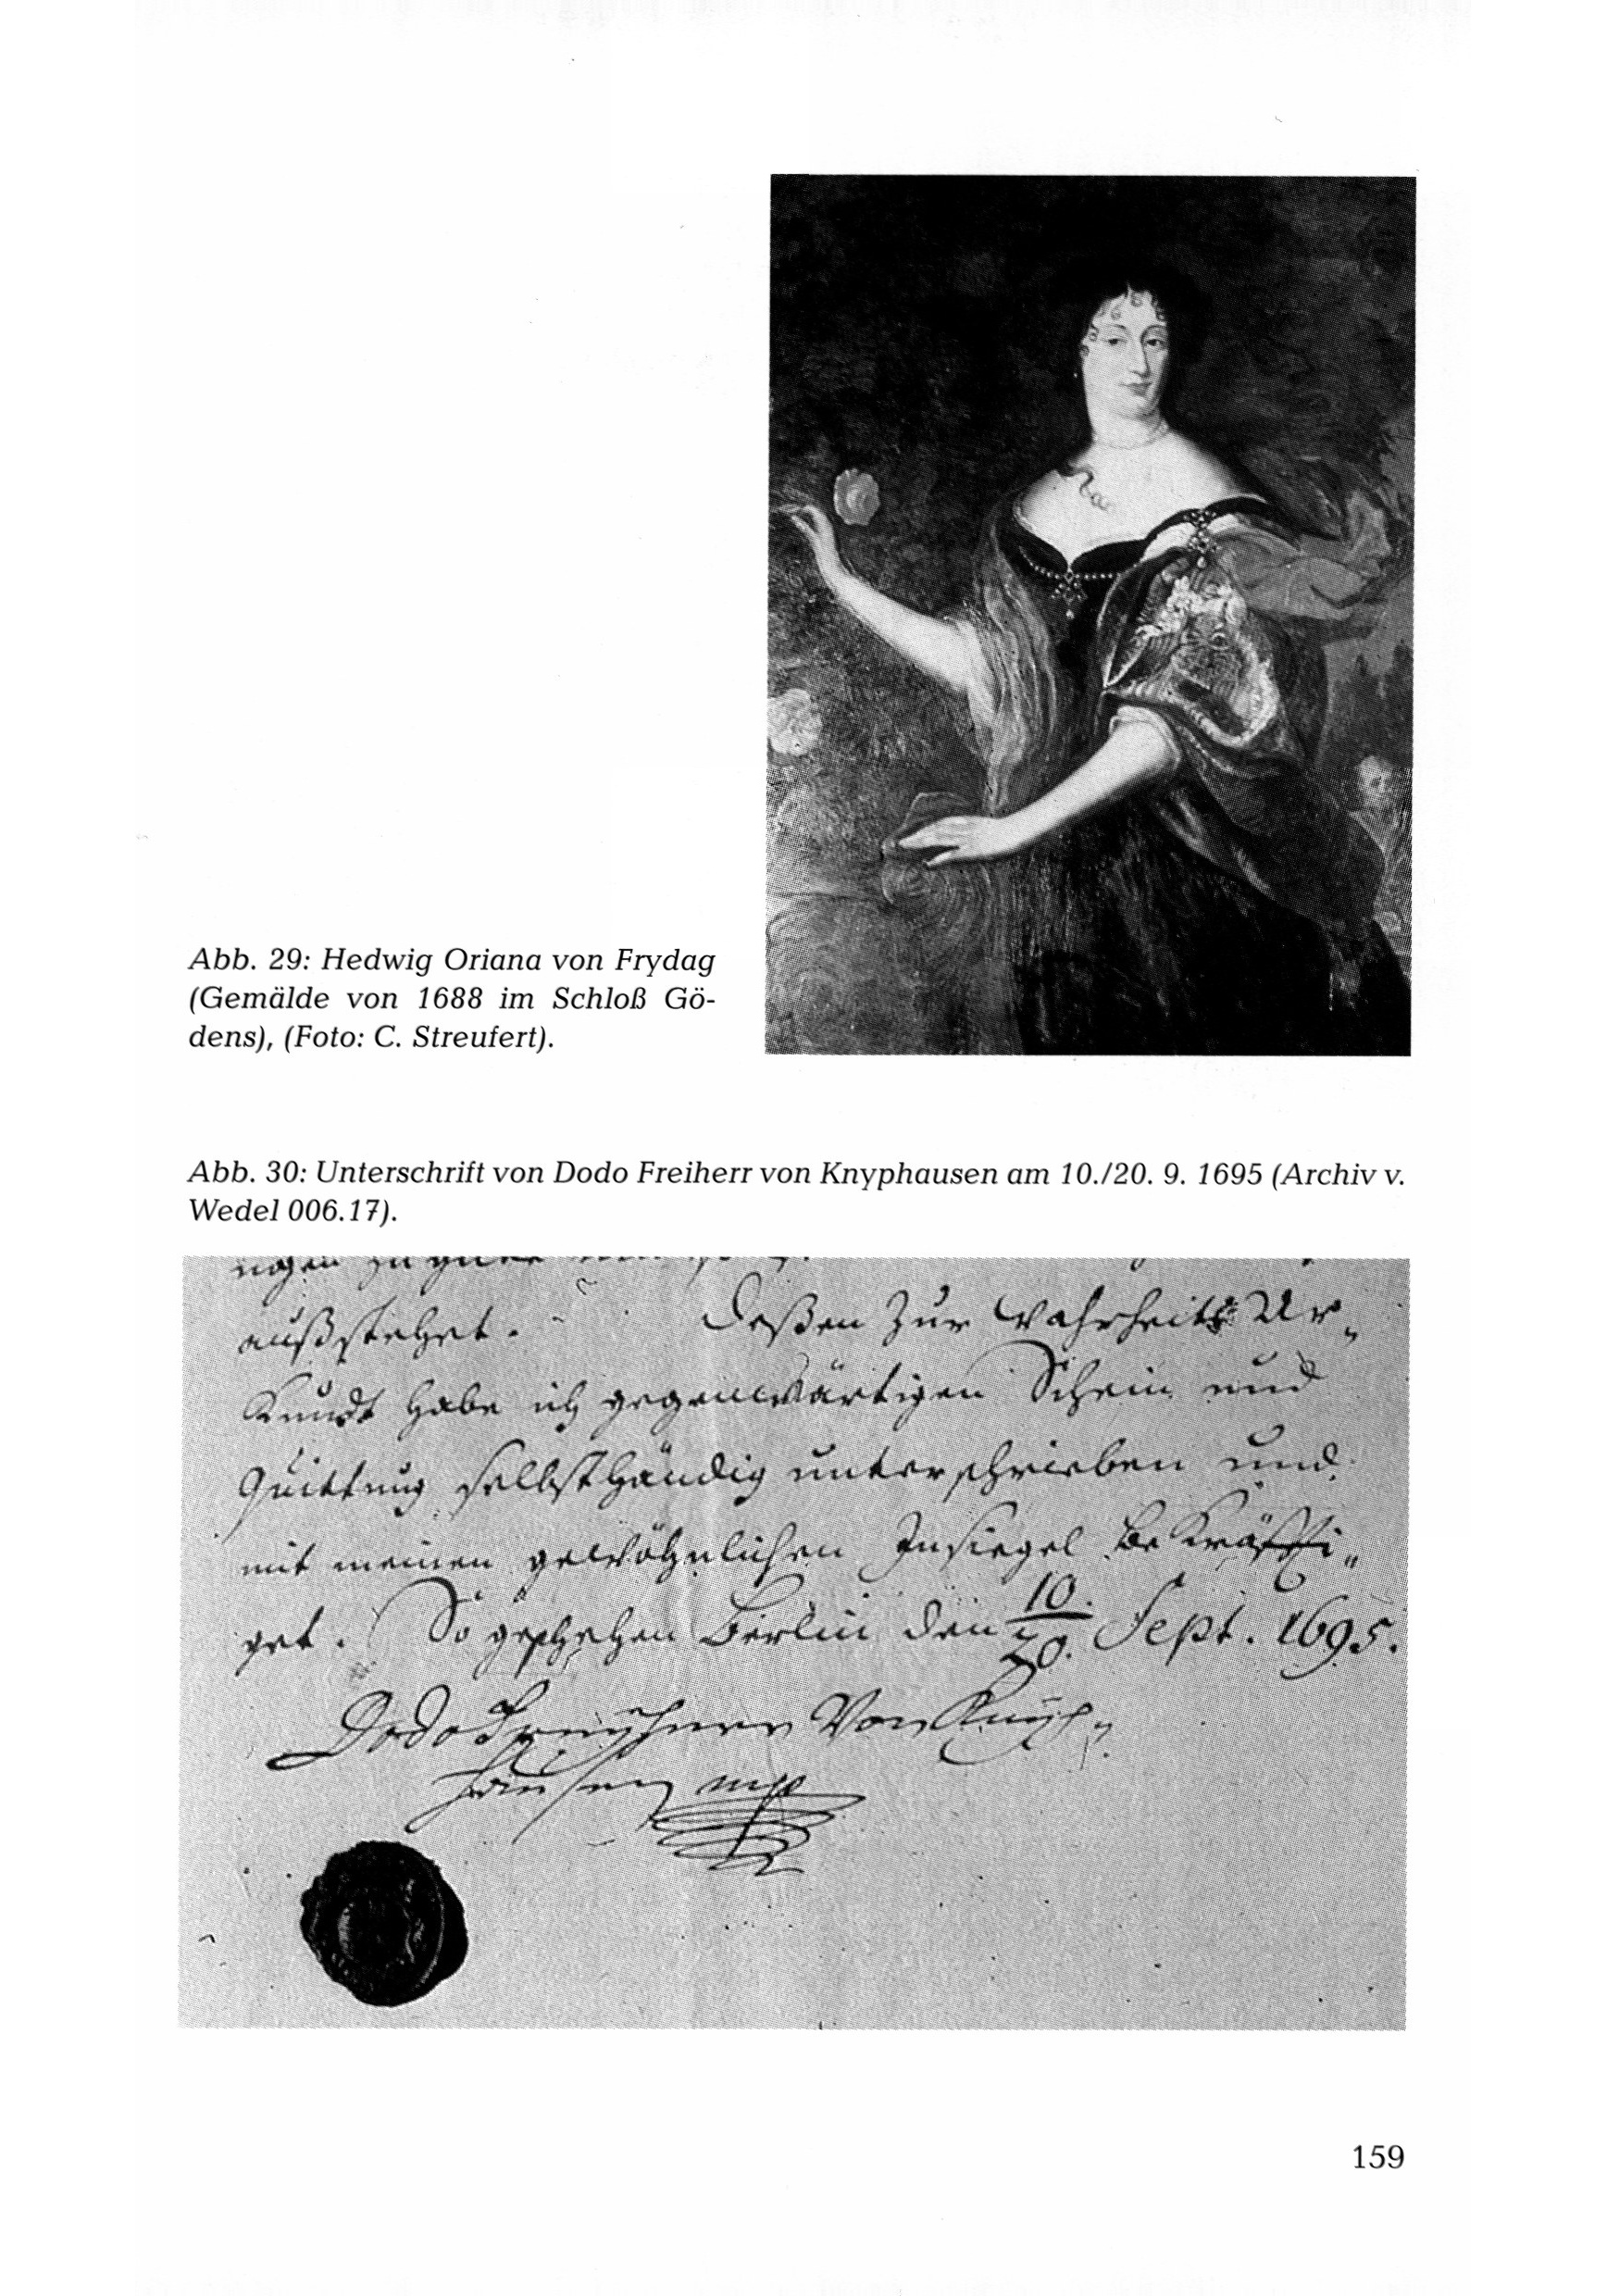 Abb. 29: Hedwig Oriana von Frydag
(Gemälde von 1688 im Schloß Gö-
dens), (Foto: C. Streufert).
Abb. 30: Unterschrift von Dodo Freiherr von Knyphausen am 10./20. 9. 1695 (Archiv v.
Wedel 006.17).
außstehet. Deßen zur Wahrheits Ur„
Kundt habe ich gegenwärtigen Schein und
Quittung selbsthändig unterschrieben und
mit meinen gewöhnlichen Insiegel bekräffti„
get. So geschehen Berlin den 10./20. Sept. 1695.
Dodo Freyherr Von Knyp„
hausen mp
159